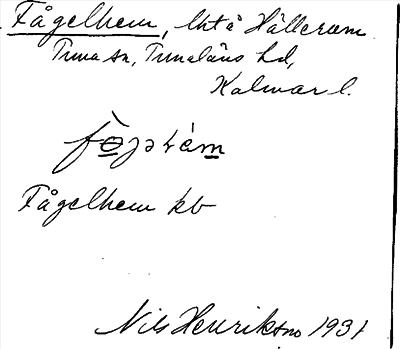 Fågelhem, lht å Hällerum
Tuna sn, Tunaläns hd,
Kalmar l.
Fågelhem kb
Nils Henriksson 1931